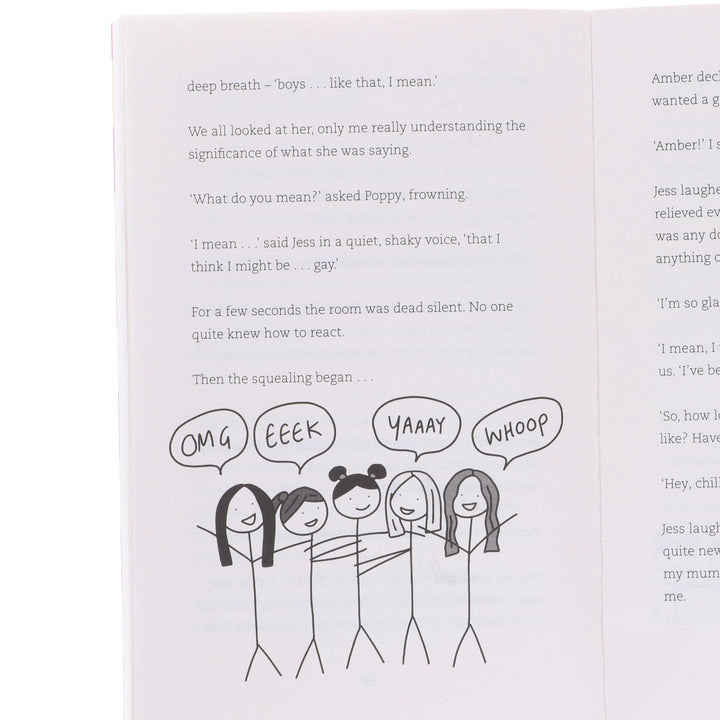 deep breath – ‘boys . . . like that, I mean.’
We all looked at her, only me really understanding the
significance of what she was saying.
‘What do you mean?’ asked Poppy, frowning.
‘I mean . . .’ said Jess in a quiet, shaky voice, ‘that I
think I might be . . . gay.’
For a few seconds the room was dead silent. No one
quite knew how to react.
Then the squealing began . . .
OMG
EEEK
YAAAY
WHOOP
Amber
wanted a
‘Amber!’ I
Jess
relieved
was any
anything
‘I’m so
‘I mean, I
us. ‘I’ve
‘So, how
like? Have
‘Hey,
Jess
quite
my mum
me.